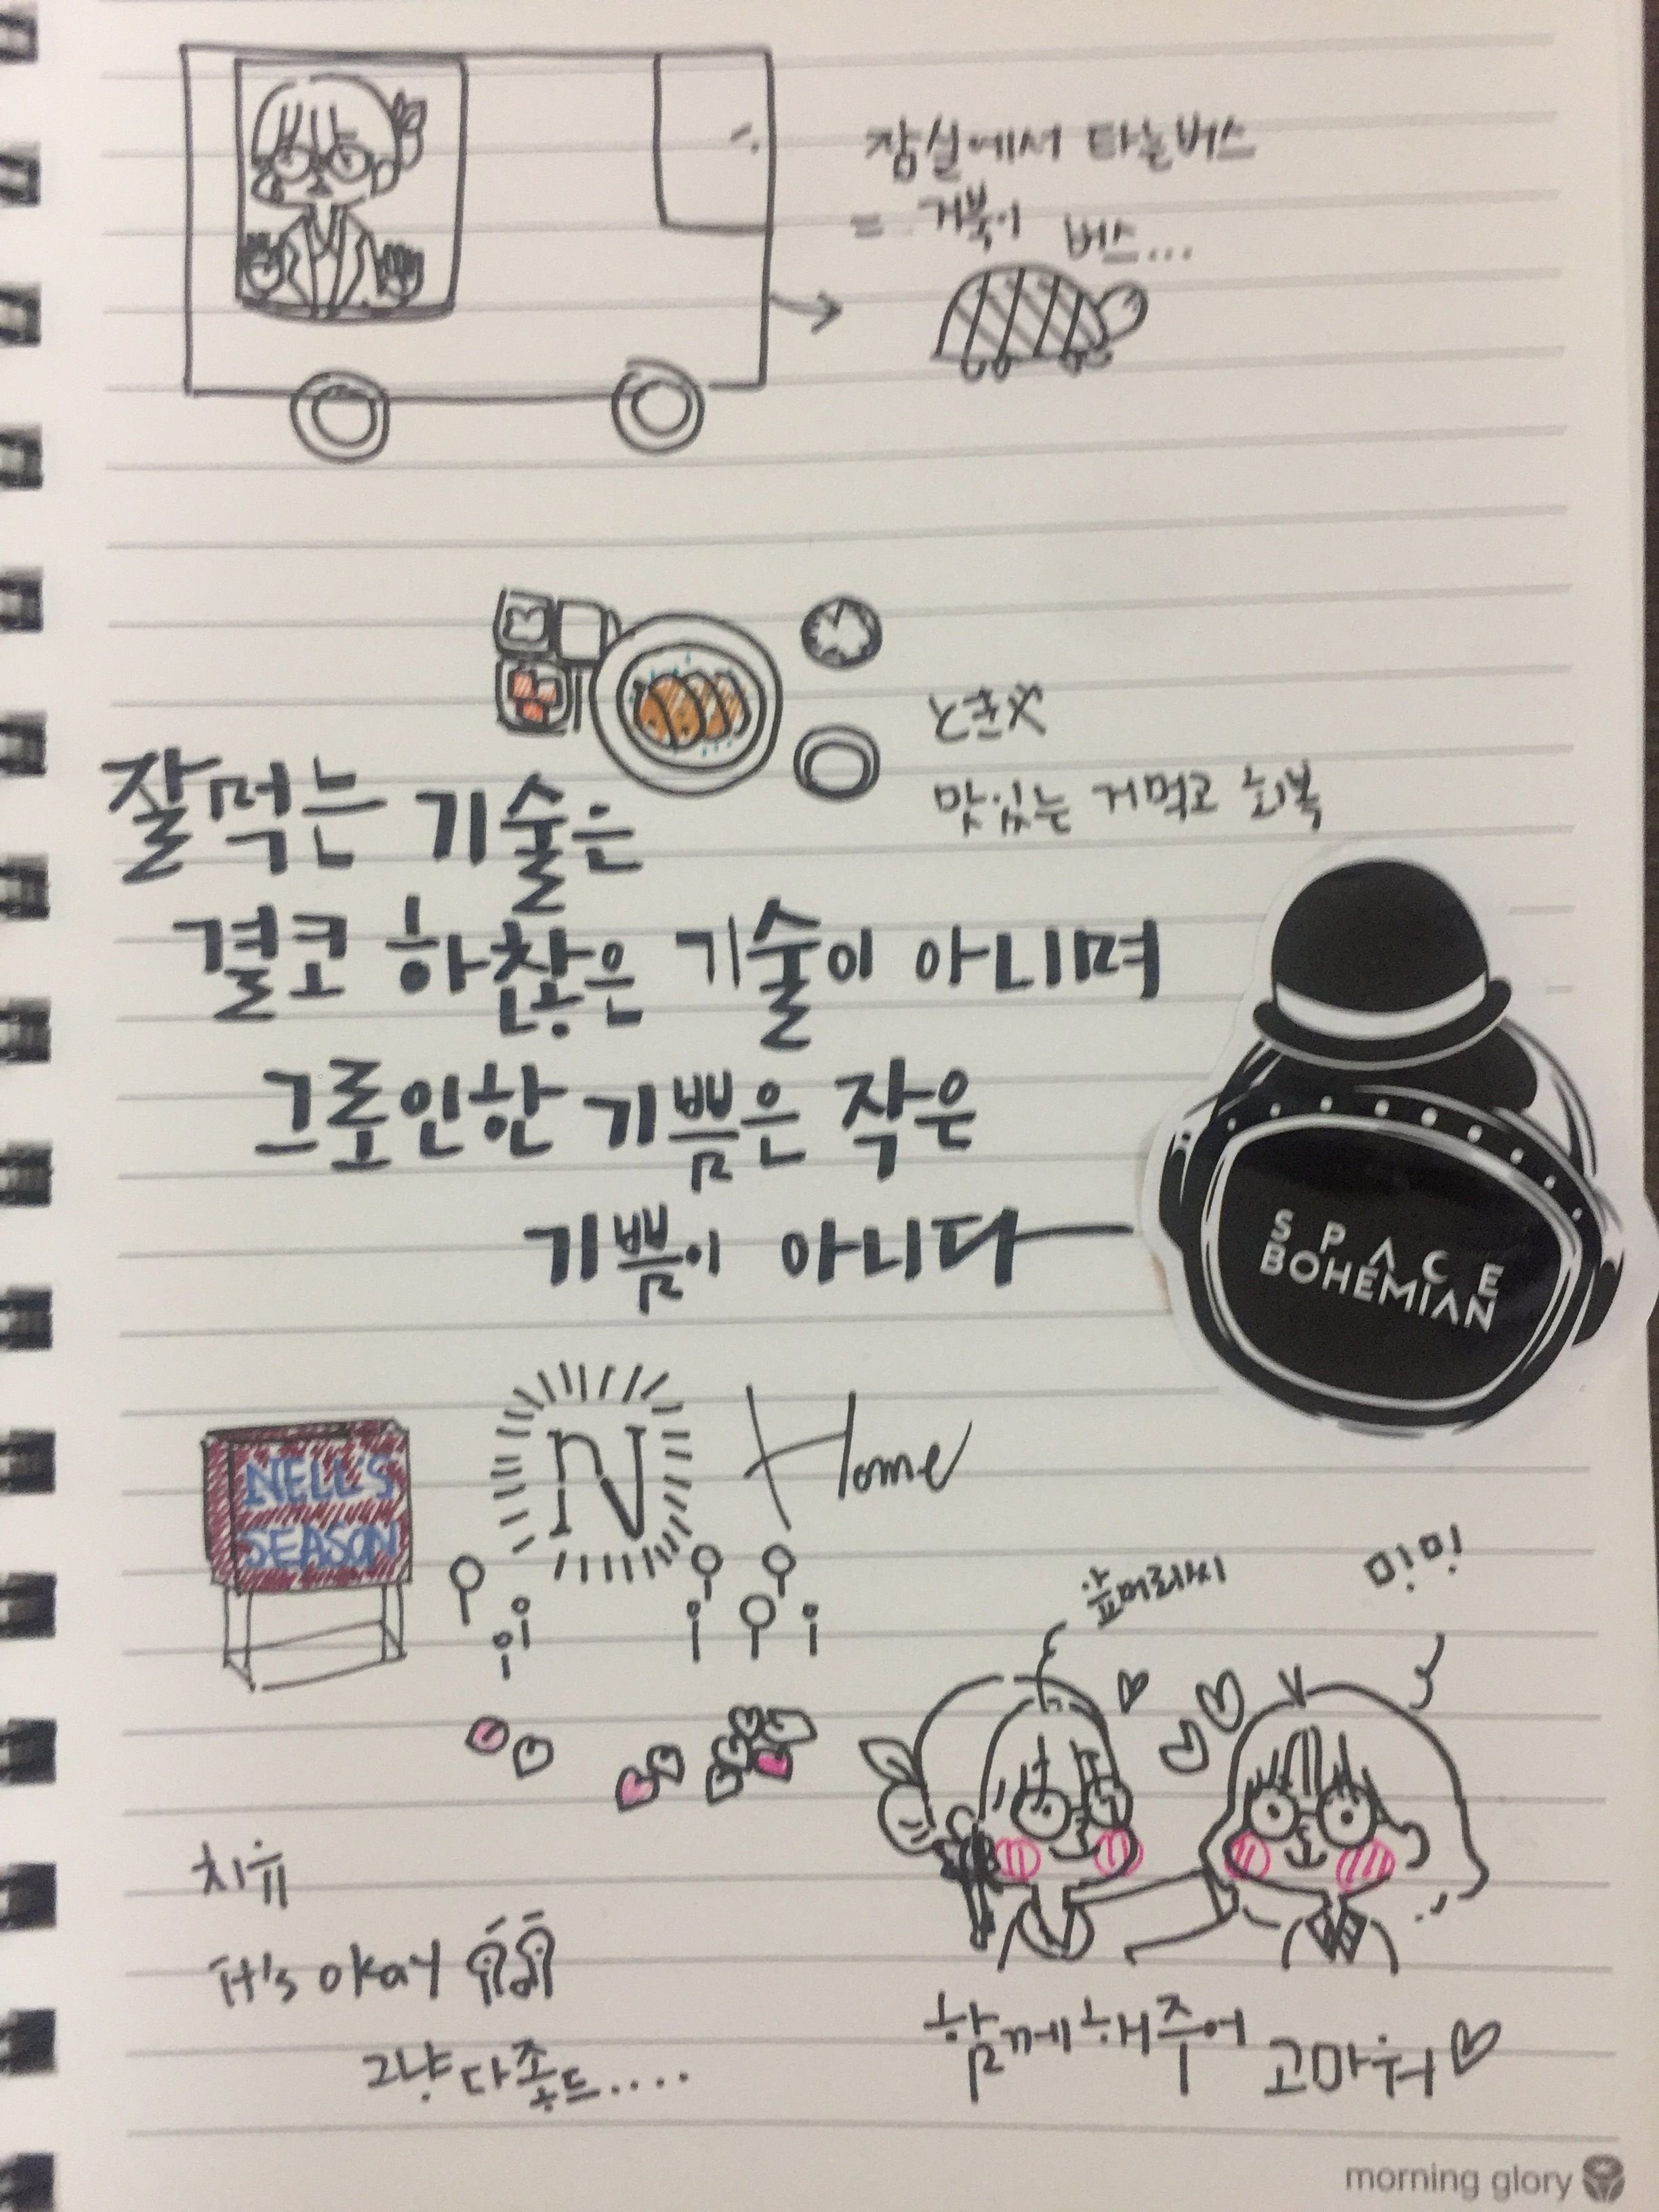 잠실에서 타는버스
= 거북이 버스...
ときメ
맛있는 거먹고 회복
잘먹는 기술은
결코 하찮은 기술이 아니며
그로인한 기쁨은 작은
기쁨이 아니다
SPACE
BOHEMIAN
NELL'S
SEASON
N
Home
앞머리씨
미미
치유
it's okay
그냥 다좋드....
함께해주어 고마워♡
morning glory